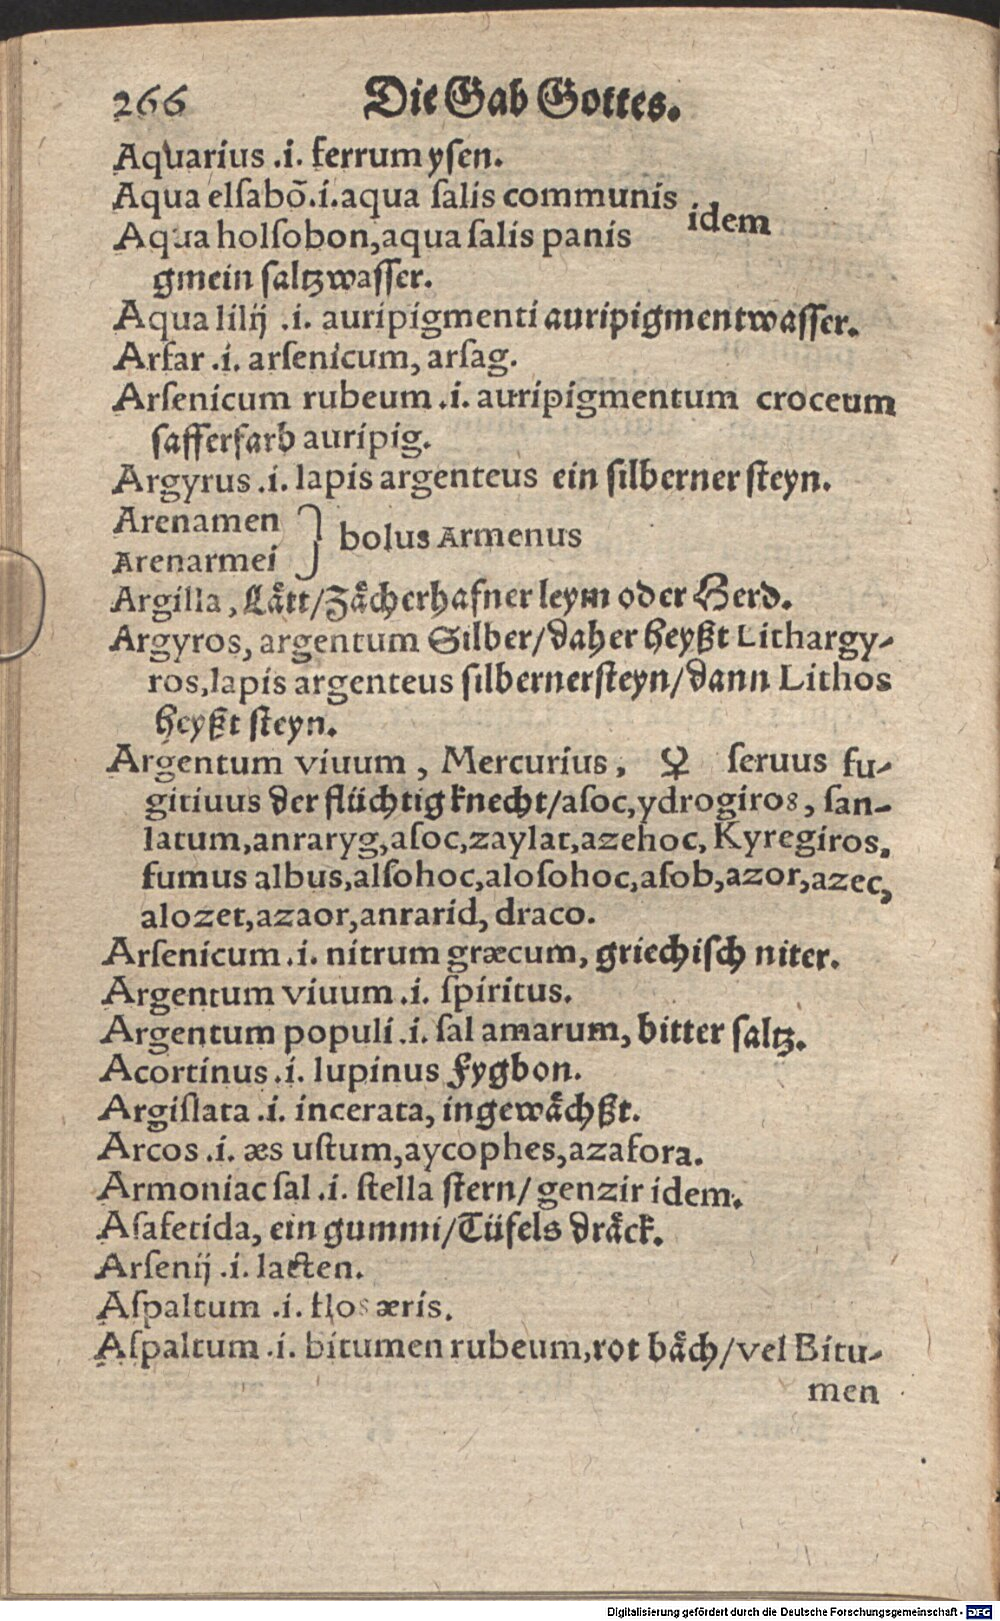 266 Die Gab Gottes.
Aquarius .i. ferrum ysen.
Aqua elsabõ.i.aqua salis communis
Aqua holsobon,aqua salis panis idem
gmein saltzwasser.
Aqua lilij .i. auripigmenti auripigmentwasser.
Arfar .i. arsenicum, arsag.
Arsenicum rubeum .i. auripigmentum croceum
safferfarb auripig.
Argyrus .i. lapis argenteus ein silberner steyn.
Arenamen
Arenarmei } bolus Armenus
Argilla, Lått/Zåcherhafner leym oder Herd.
Argyros, argentum Silber/daher heyßt Lithargy-
ros,lapis argenteus silbernersteyn/dann Lithos
heyßt steyn.
Argentum viuum, Mercurius, ☿ seruus fu-
gitiuus der flüchtig knecht/asoc,ydrogiros, san-
latum,anraryg,asoc,zaylat,azehoc, Kyregiros,
fumus albus,alsohoc,alosohoc,asob,azor,azec,
alozet,azaor,anrarid, draco.
Arsenicum .i. nitrum græcum, griechisch niter.
Argentum viuum .i. spiritus.
Argentum populi .i. sal amarum, bitter saltz.
Acortinus .i. lupinus Fygbon.
Argislata .i. incerata, ingewåchßt.
Arcos .i. æs ustum,aycophes,azafora.
Armoniac sal .i. stella stern/genzir idem.
Asafetida, ein gummi/Tüfels dråck.
Arsenij .i. lacten.
Aspaltum .i. flos æris.
Aspaltum .i. bitumen rubeum,rot båch/vel Bitu-
men
Digitalisierung gefördert durch die Deutsche Forschungsgemeinschaft - DFG